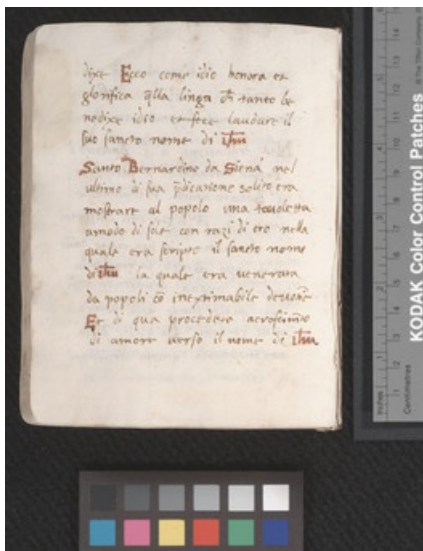 dixe Ecco come idio honora et
glorifica q̄lla linga ch̄ tanto be
nedixe idio et fece laudare il
suo sancto nome di ih̄u
Santo Bernardino da Siena nel
ultimo di sua p̄dicatione solito era
mostrare al popolo una tavoletta
amodo di sole con razi di oro nella
quale era scripto il sancto nome
di ih̄u la quale era venerata
da popoli cō inextimabile
Et di qua procedeva
di amore verso il nome di ih̄u
KODAK Color Control Patches
Inches
Centimetres